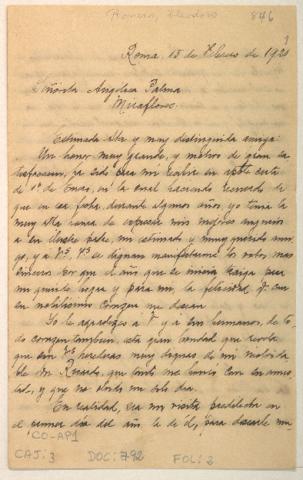 Romero, Eleodoro 846
1
Roma, 15 de Febrero de 1921
Señorita Angelica Palma
Miraflores.
Estimada y muy distinguida amiga:
Un honor muy grande, y motivo de gran sa-
tisfaccion, ha sido para mi recibir su carta
de 1º de Enero, en la cual haciendo recuerdo de
que en esa fecha, durante algunos años, yo tenia la
muy costumbre de expresar mis mejores augurios
a su ilustre padre, mi estimado y muy querido ami-
go, y a Vs. Vs. se dignan manifestarme los votos mas
sinceros por que el año que se inicia traiga para
mi querido hogar y para mi la felicidad, q. con
su nobilisimo corazon me desean.
Yo le agradezco a V y a sus hermanos, de to-
do corazon tambien, esta gran bondad que revela
que son Vs. herederos muy dignos de mi inolvida-
ble Dn Ricardo, que tanto me honró con su amis-
tad, y que no olvido un solo dia.
En realidad, era mi visita predilecta en
el primer dia del año la de él, para desearle mu-
CO-AP1
CAJ: 3 DOC: 792 FOL: 2